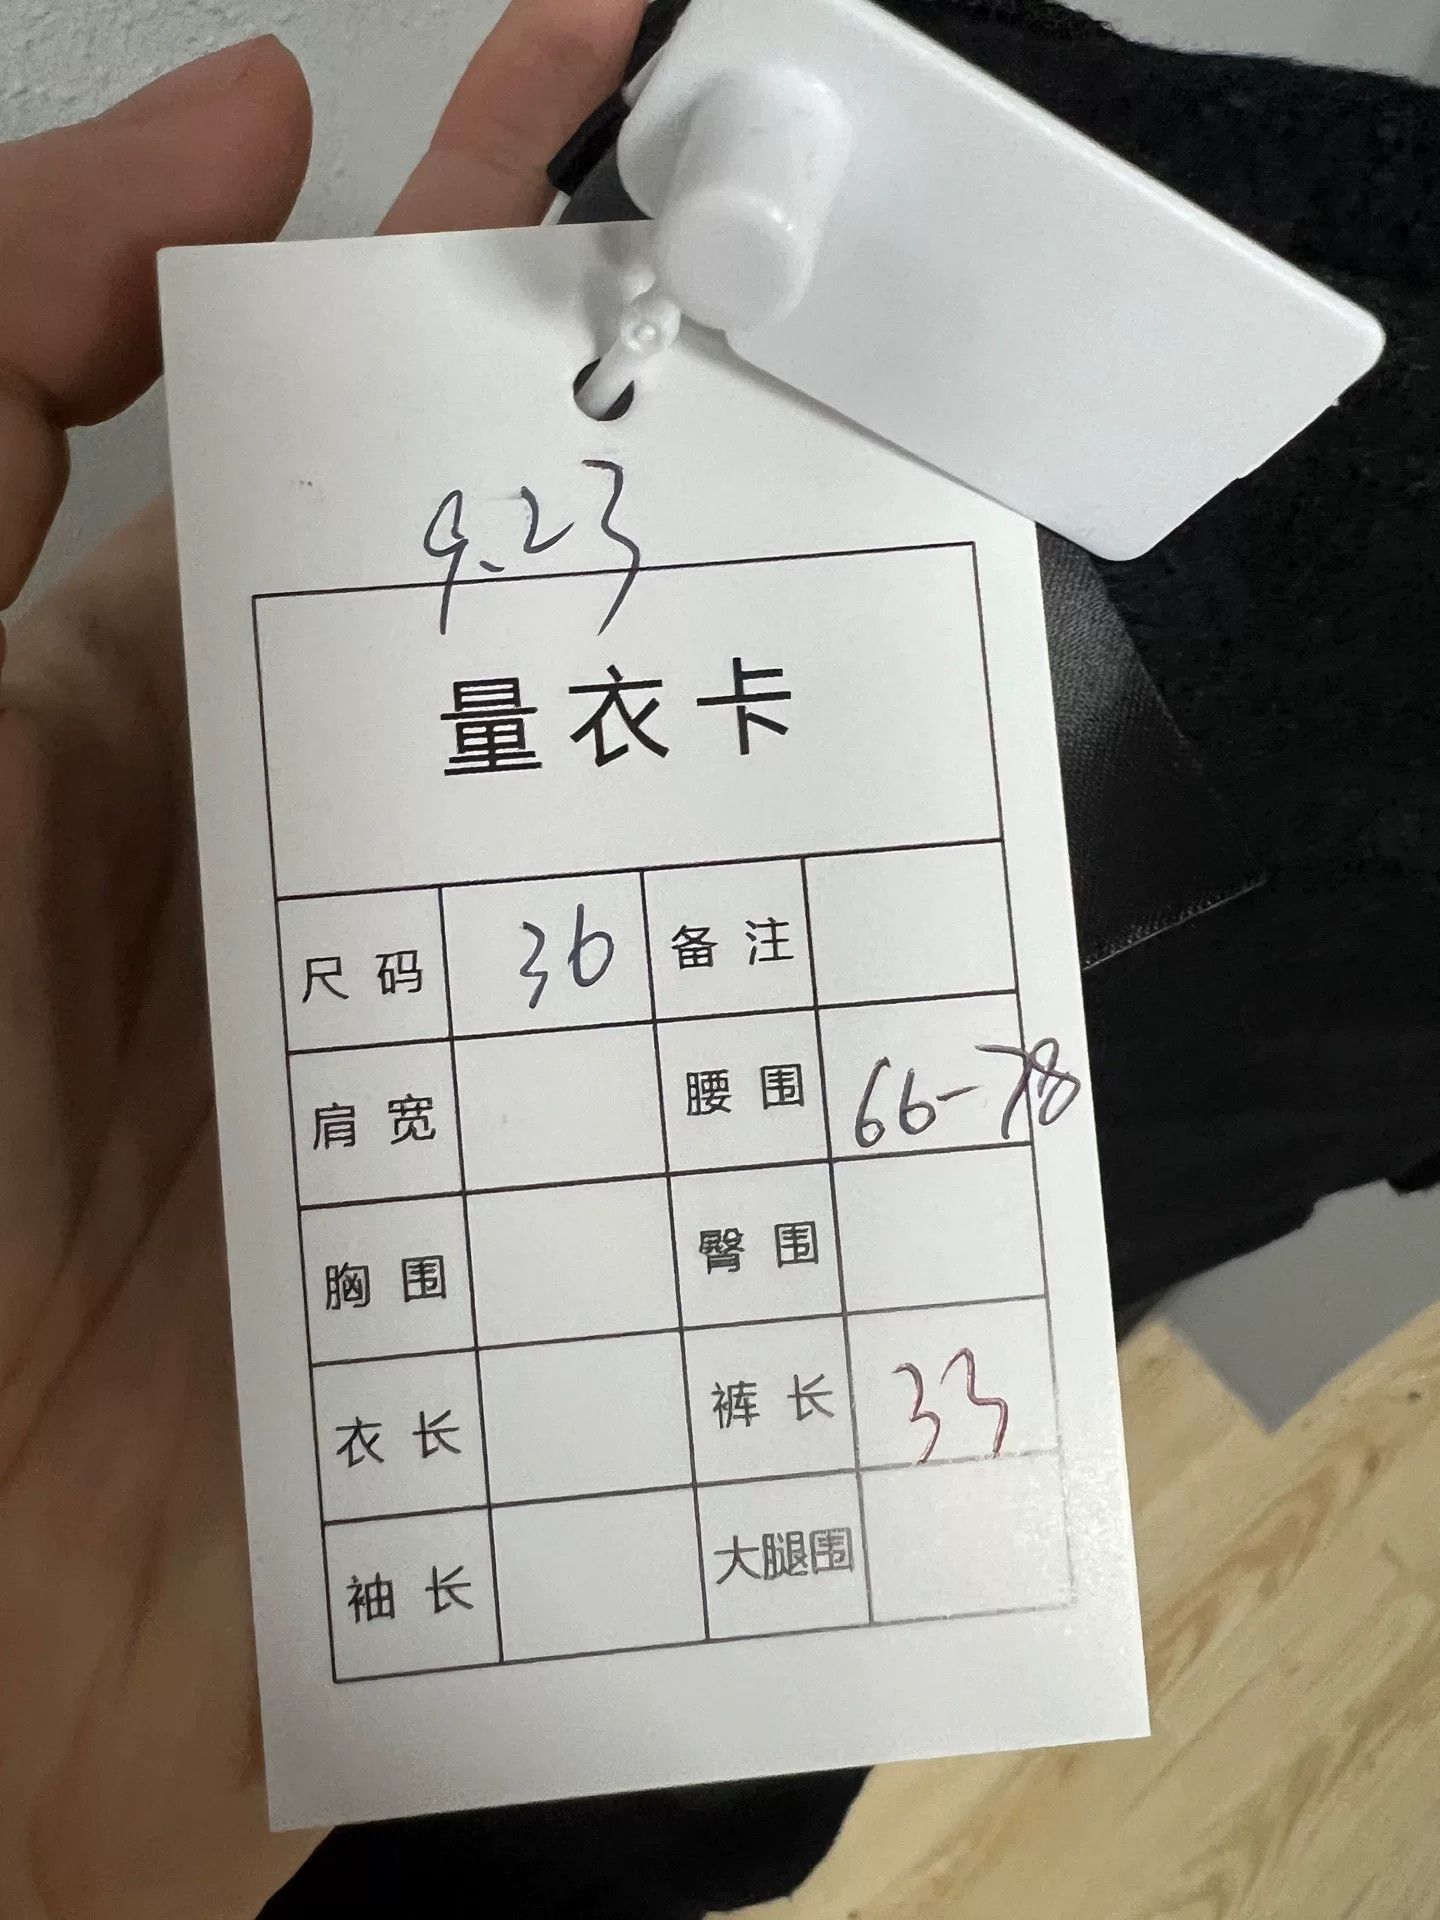 9.23
量衣卡
尺码 36 备注
肩宽 腰围 66-78
胸围 臀围
衣长 裤长 33
袖长 大腿围